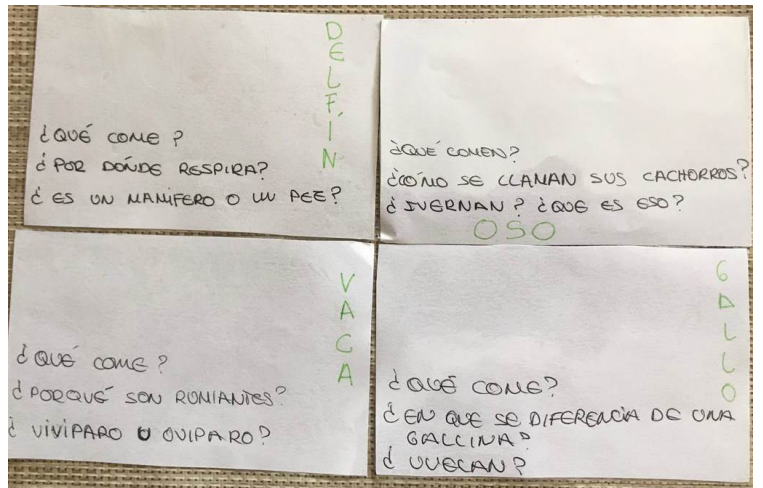 DELFÍN
¿QUÉ COME?
¿POR DÓNDE RESPIRA?
¿ES UN MAMIFERO O UN PEZ?
¿QUÉ COMEN?
¿CÓMO SE LLAMAN SUS CACHORROS?
¿IVERNAN? ¿QUE ES ESO?
OSO
VACA
¿QUÉ COME?
¿PORQUÉ SON RUMIANTES?
¿VIVIPARO U OVIPARO?
GALLO
¿QUÉ COME?
¿EN QUE SE DIFERENCIA DE UNA
GALLINA?
¿VUELAN?